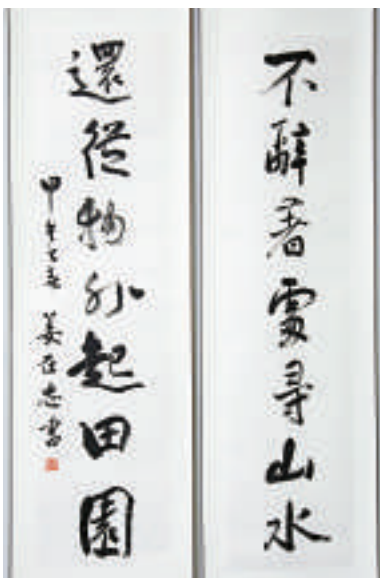 不辭著處尋山水
還從物外起田園
甲午之春 姜在忠書